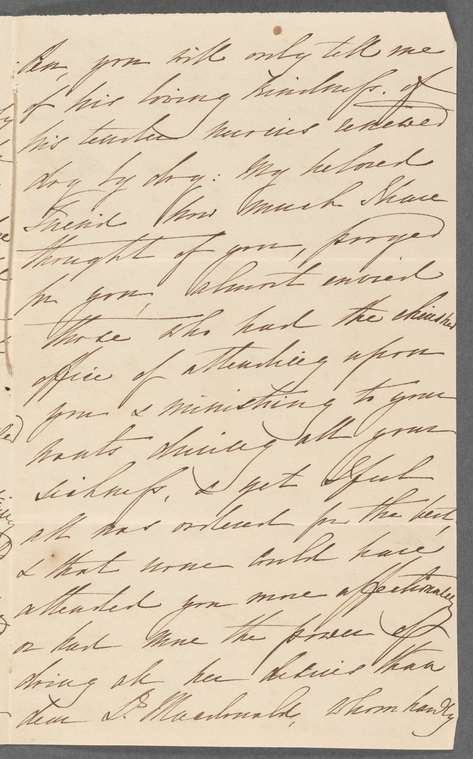 you will only tell me
of his loving kindness, of
his tender mercies renewed
day by day: My beloved
Friend how much I have
thought of you, prayed
for you, almost envied
those who had the cherished
office of attending upon
you & ministring to your
wants during all your
sickness, & yet I feel
all was ordered for the best,
& that none could have
attended you more affectionately
or had more the power of
doing all her desires than
dear Dr. Macdonald, whom